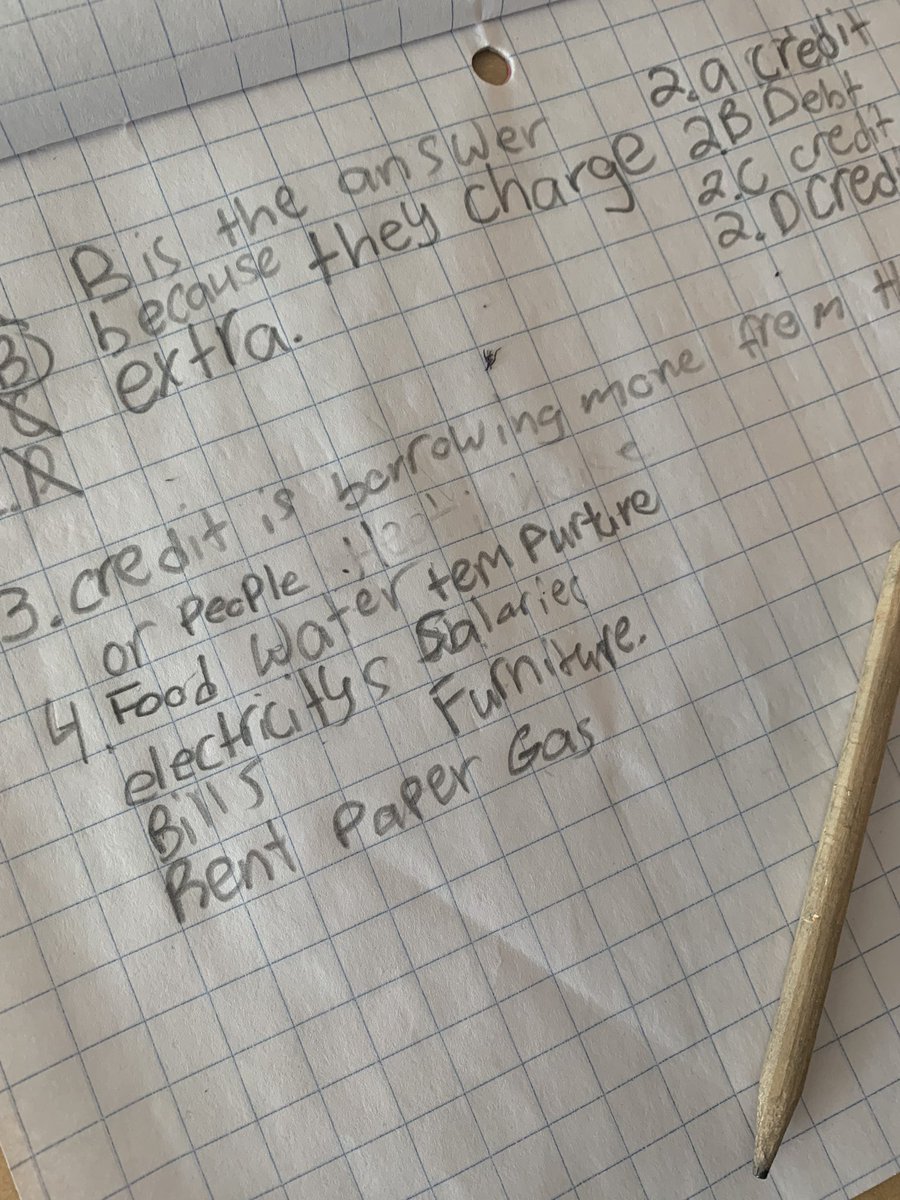 B is the answer
B) because they charge
extra.
2.a credit
2B Debt
2.C credit
2.D Credi
3. credit is borrowing more from th
or people.
4. Food Water tempurture
electricitys Salaries
Bills Furniture.
Rent Paper Gas